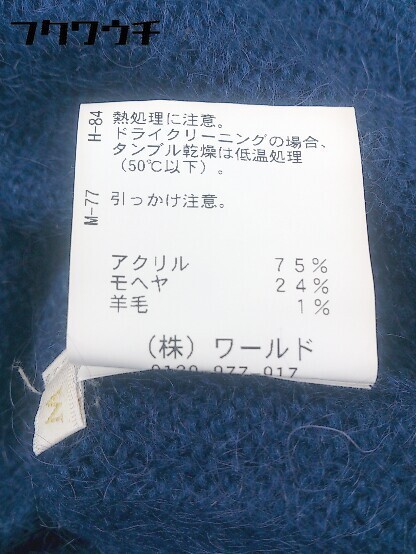 フクワウチ
H-84 熱処理に注意。
ドライクリーニングの場合、
タンブル乾燥は低温処理
（50℃以下）。
M-77 引っかけ注意。
アクリル 75%
モヘヤ 24%
羊毛 1%
（株）ワールド
0120-977-917